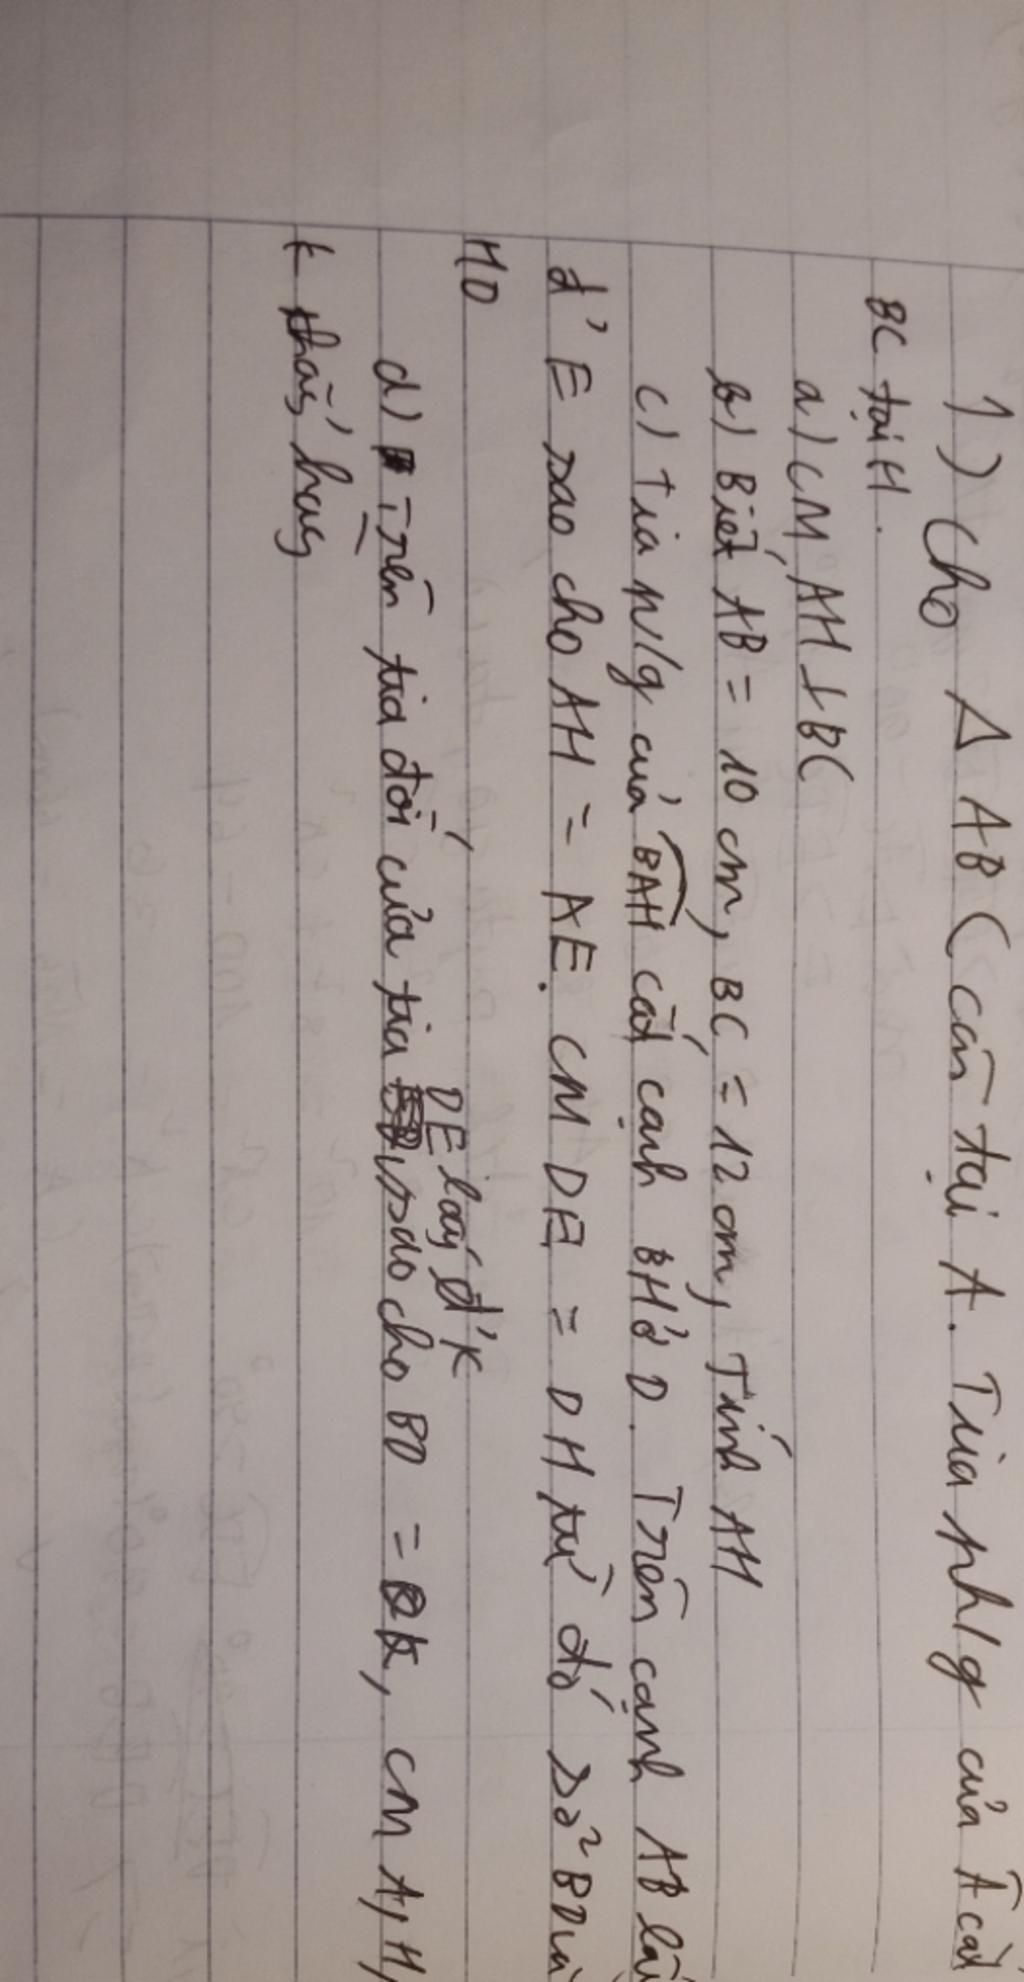 1) Cho Δ ABC cân tại A. Tia ph/g của Â cắt
BC tại H.
a) CM AH ⊥ BC
b) Biết AB = 10 cm, BC = 12 cm, Tính AH
c) Tia p/g của BAH cắt cạnh BH ở D. Trên cạnh AB lấ
đ' E sao cho AH = AE. CM DE = DH từ đó so² BD và
HD
DE lấy đ' K
d) Trên tia đối của tia sao cho BD = DK, CM A, H,
K thẳng hàng